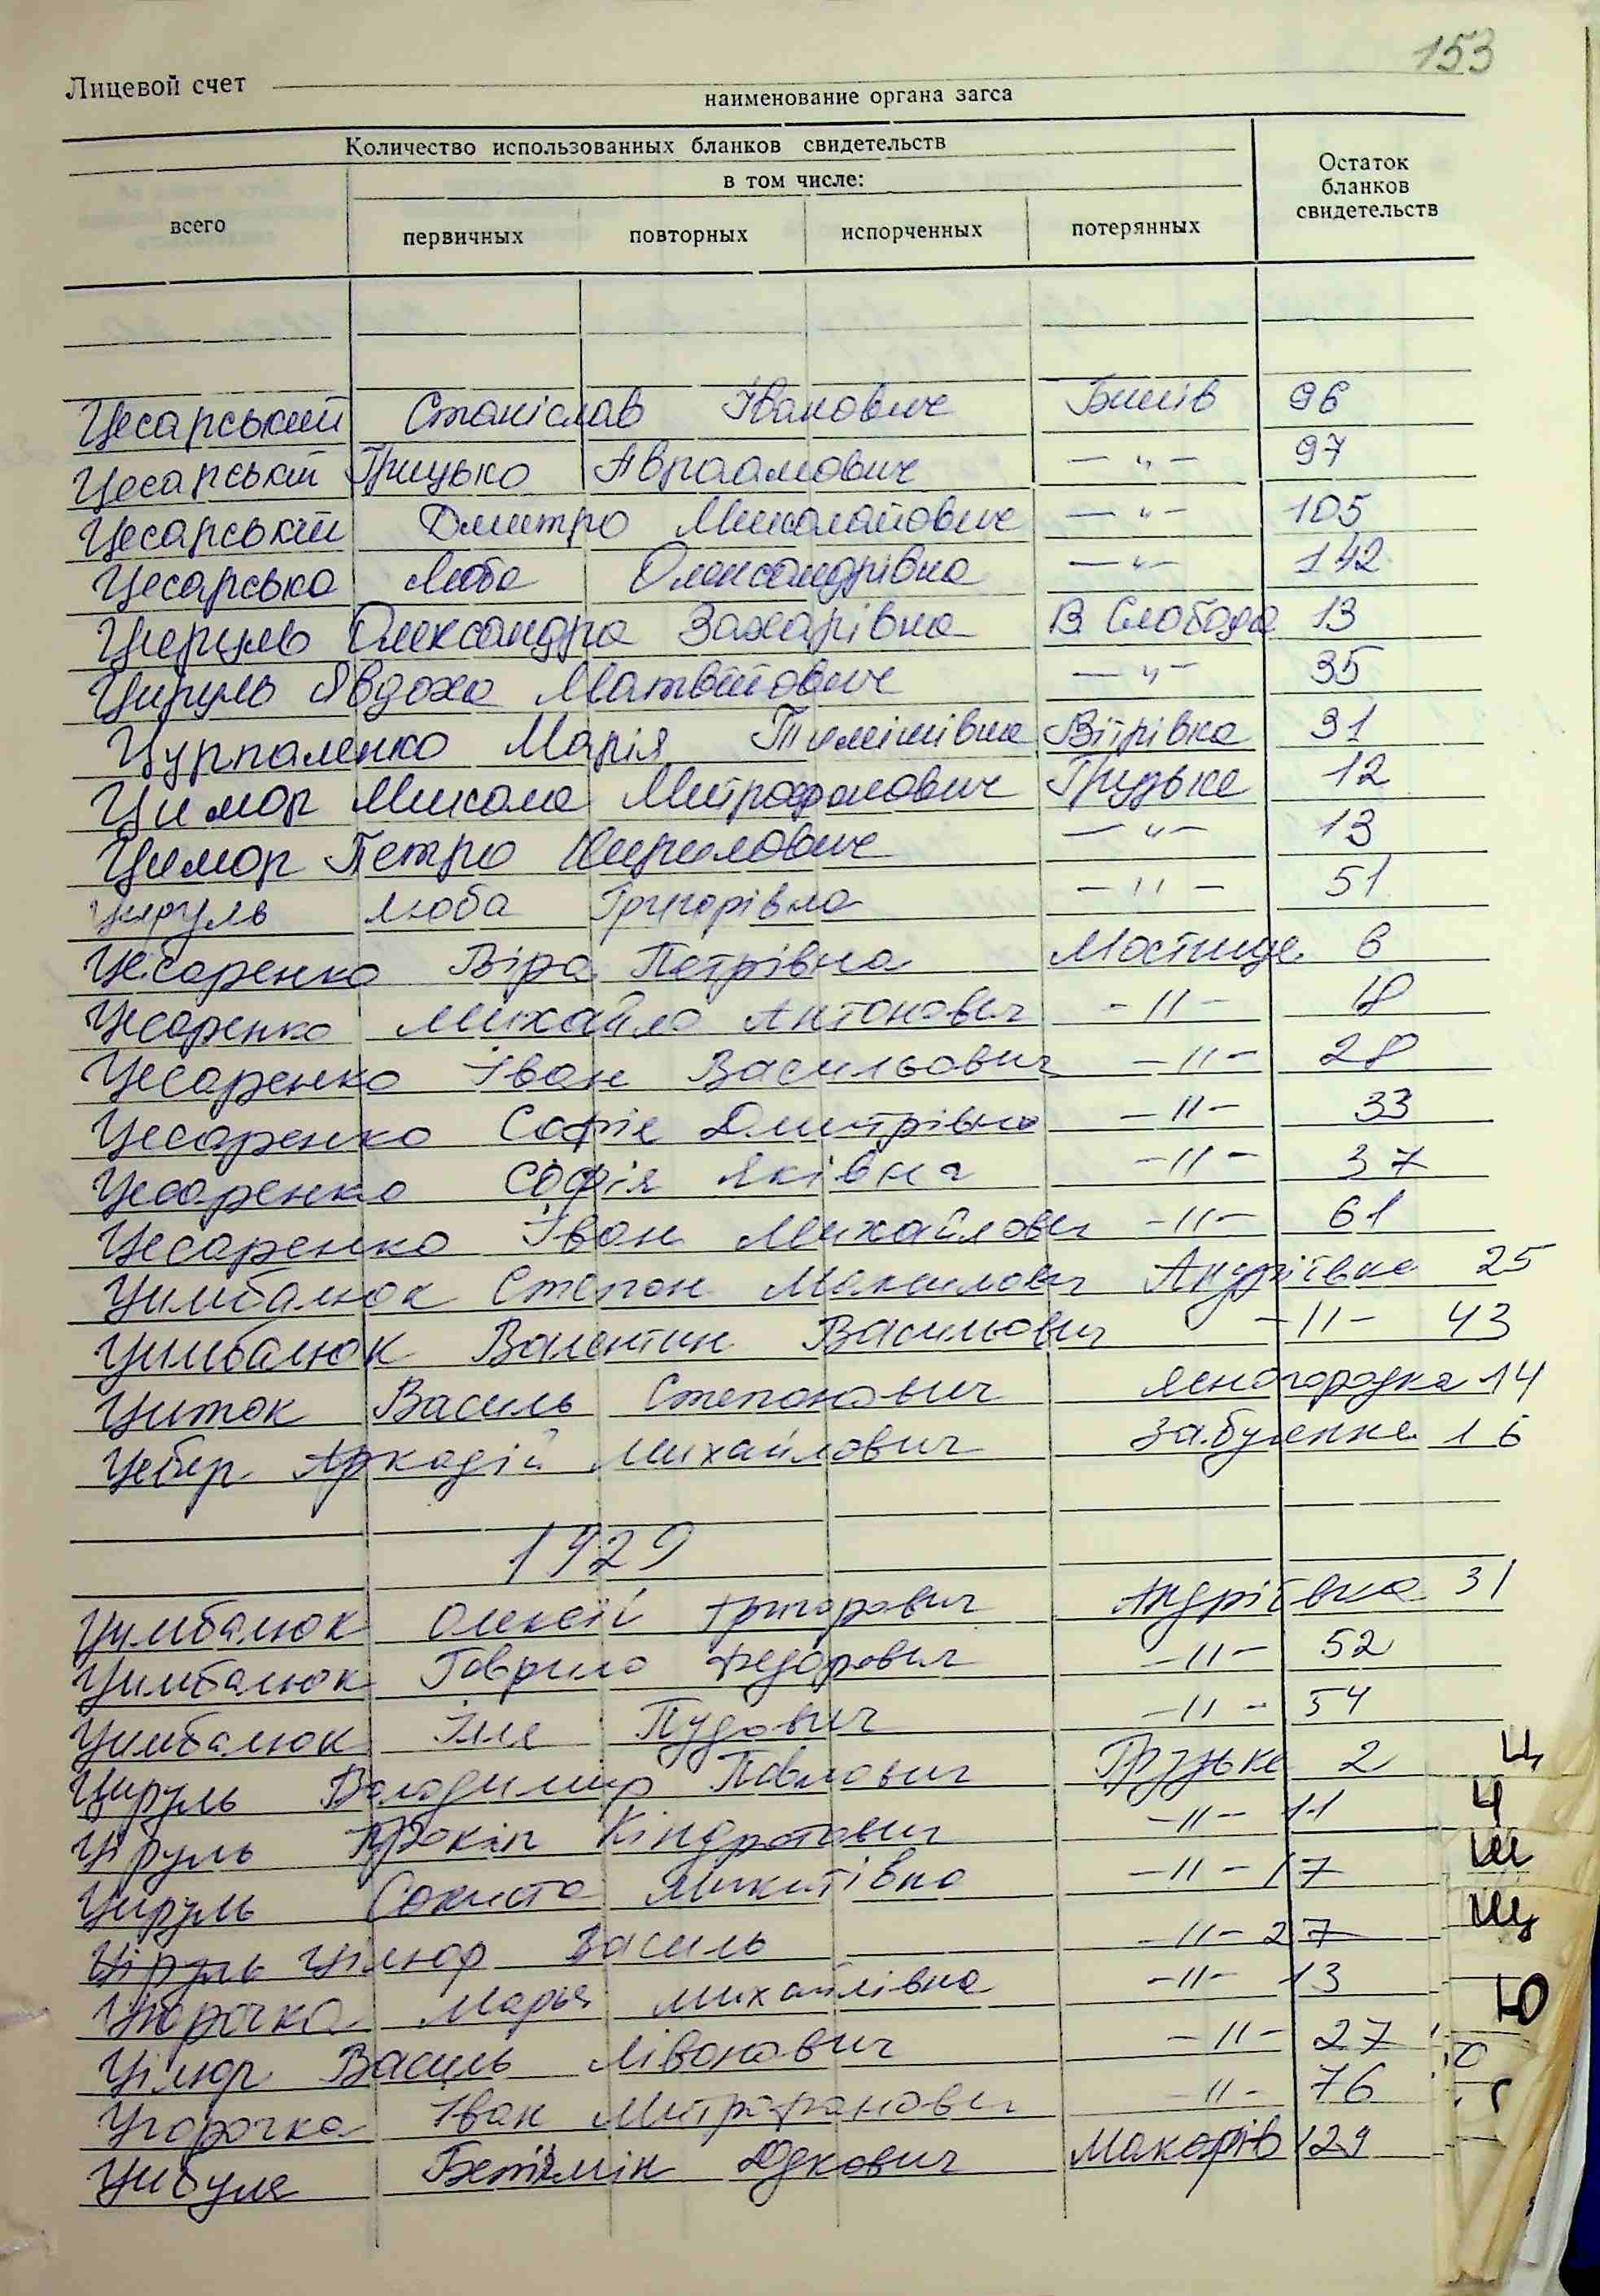 153
Лицевой счет
наименование органа загса
Количество использованных бланков свидетельств
в том числе:
всего первичных повторных испорченных потерянных Остаток бланков свидетельств
Цесарський Станіслав Іванович Бишів 96
Цесарській Грицько Авраамович — " — 97
Цесарській Дмитро Миколайович — " — 105
Цесарська Люба Олександрівна — " — 142
Олександра Захарівна В. Слобода 13
Цируль Явдоха Матвійович — " — 35
Цурпаленко Марія Вітрівка 31
Цимор Микола Митрофанович Грузьке 12
Цимор Петро Кирилович — " — 13
Цируль Люба Григорівна — " — 51
Цесаренко Віра Петрівна Мостище 6
Цесаренко Михайло Антонович - " - 18
Цесаренко Іван Васильович - " - 28
Цесаренко Софія Дмитрівна - " - 33
Цесаренко Софія Яківна - " - 37
Цесаренко Іван Михайлович - " - 61
Цимбалюк Степан Макимович Андріївка 25
Цимбалюк Валентин Васильович - " - 43
Циток Василь Степанович Ясногородка 14
Цебер Аркадій Михайлович Забуяння 16
1929
Цимбалюк Олексій Григорович Андріївка 31
Цимбалюк Гаврило Федорович - " - 52
Цимбалюк Ілля Пудович - " - 54
Цируль Володимир Павлович Грузьке 2
Ціруль Прокіп Кіндратович - " - 11
Цируль Микитівна - " - 17
Ціруль Цілюр Василь - " - 27
Цюрочка Марія Михайлівна - " - 13
Цілюр Василь Лівонович - " - 27
Іван Митрофанович - " - 76
Цибуля Юдкович Макарів 129
Ц
Ч
Ш
Щ
Ю